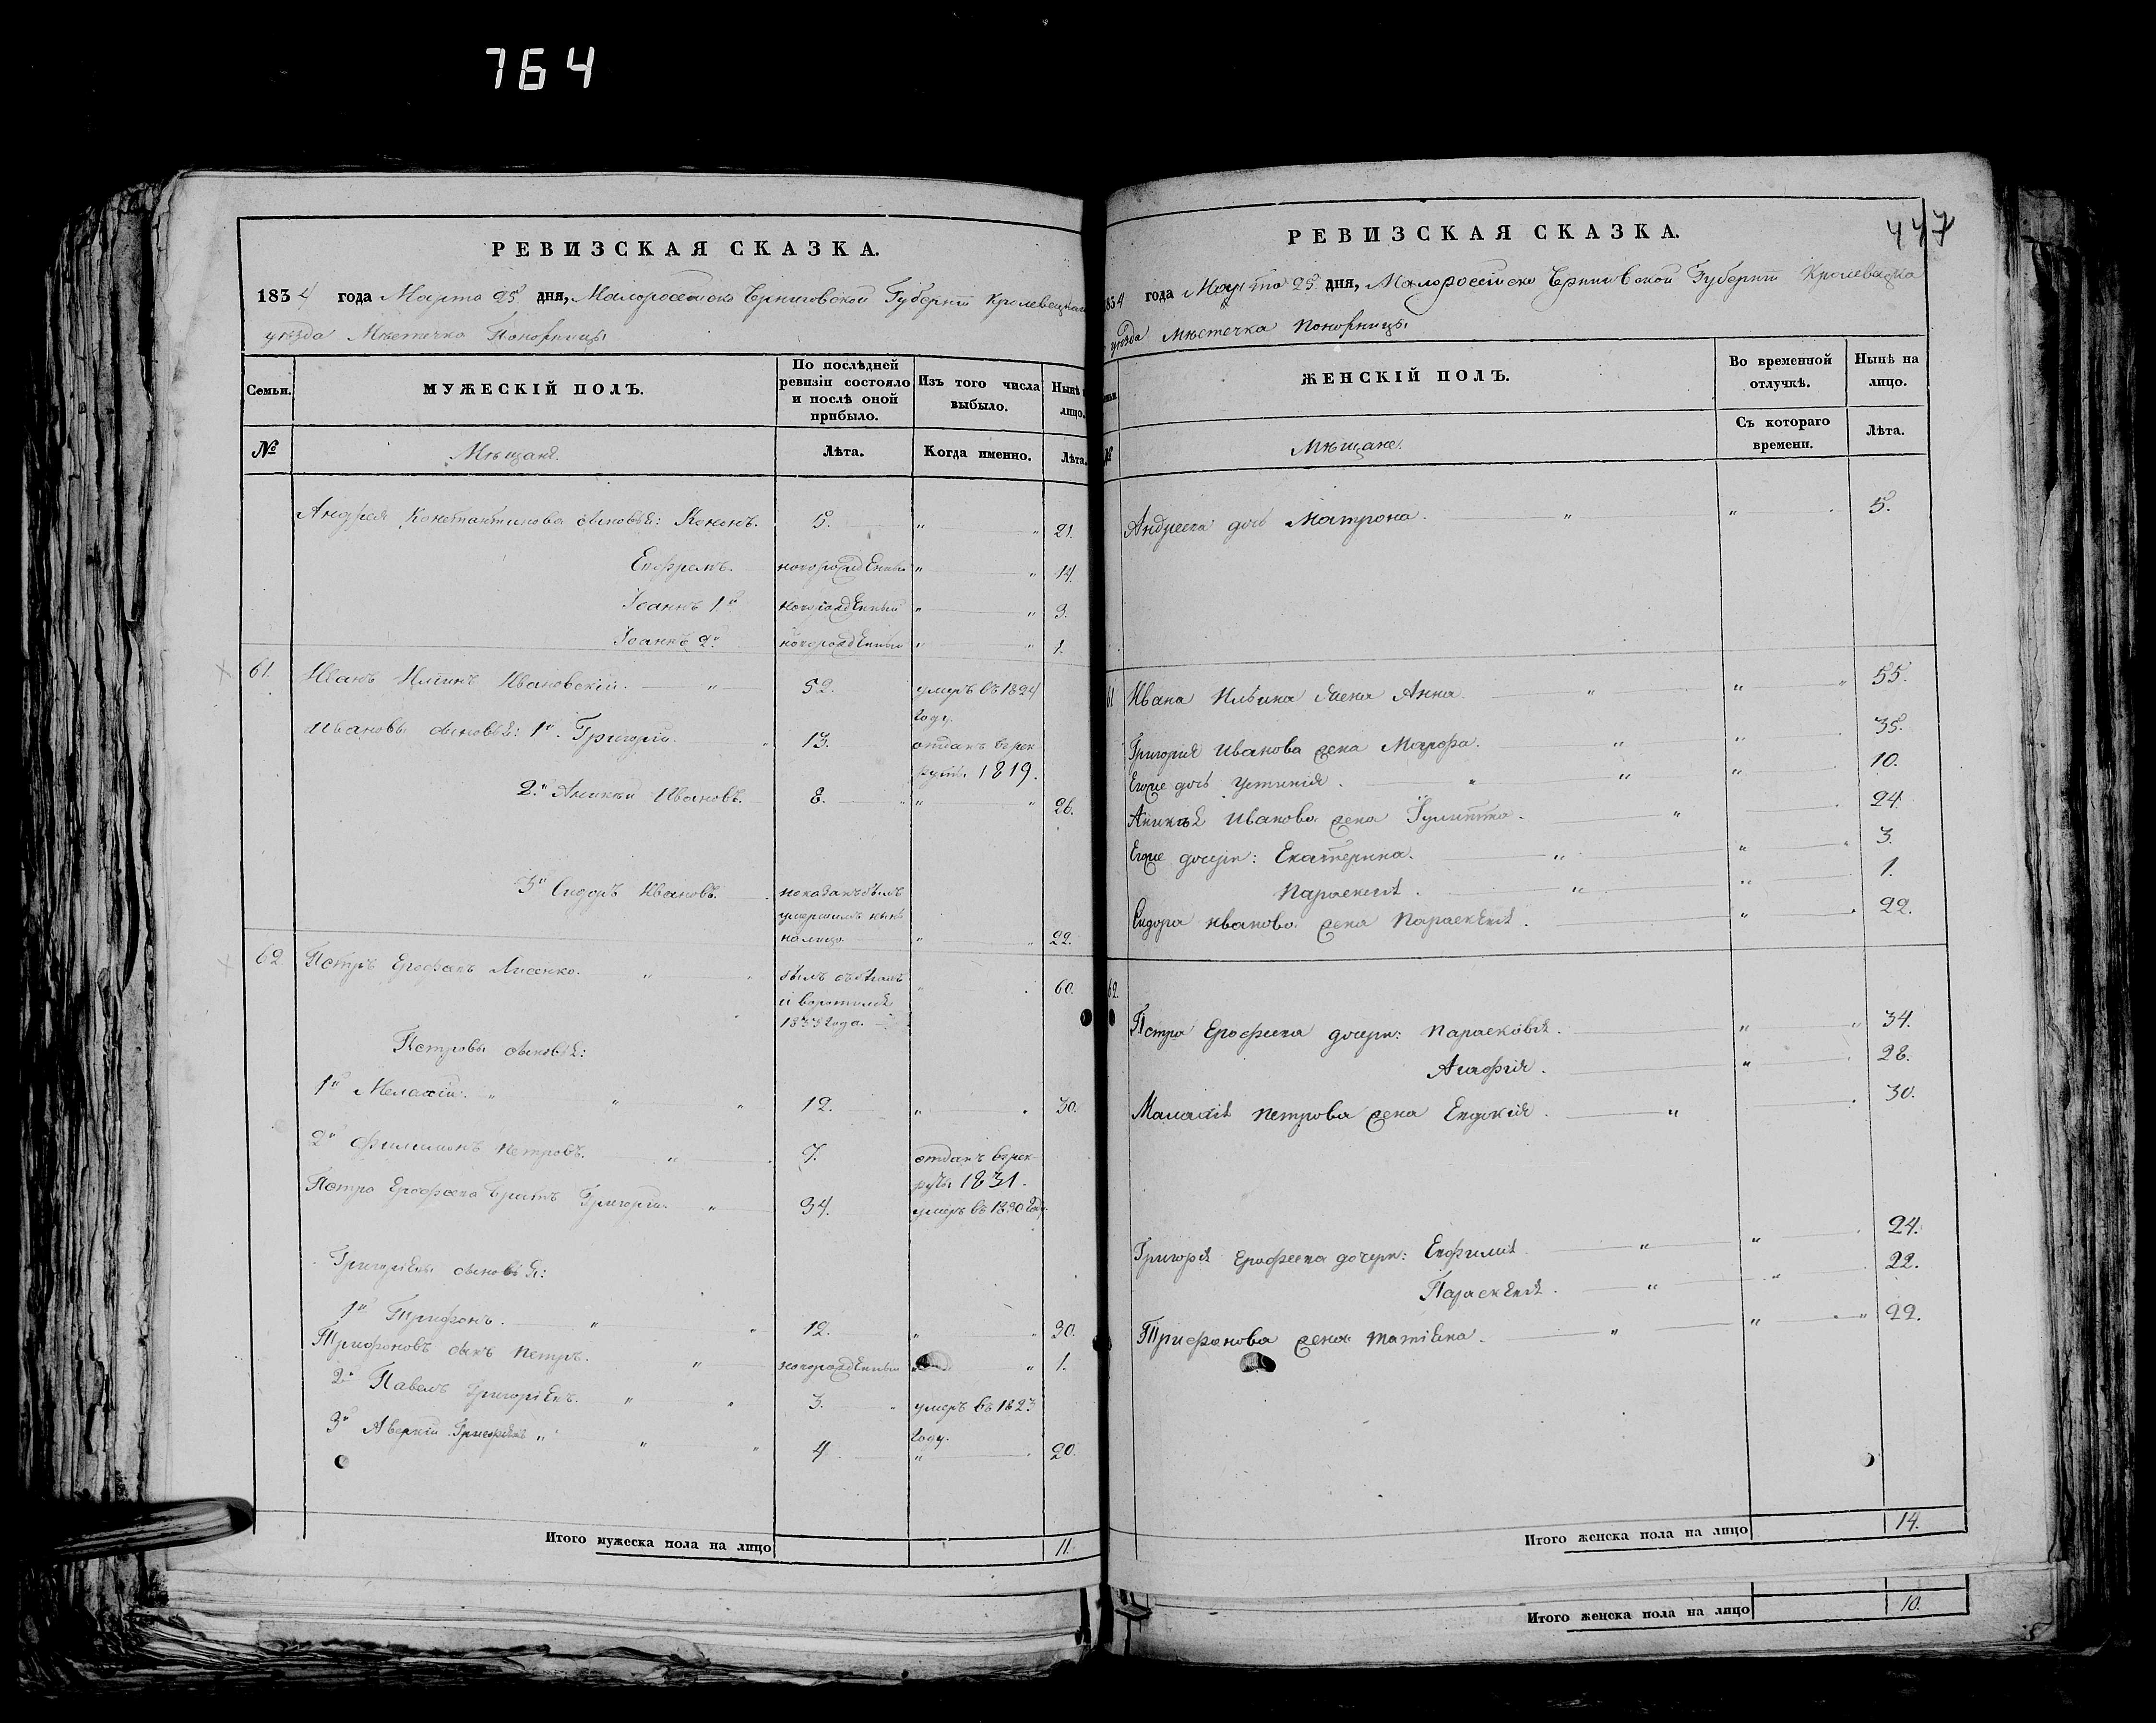 764
РЕВИЗСКАЯ СКАЗКА.
1834 года Марта 25 дня, Малоросеійско Черниговской Губерніи Кролевецкаго
уѣзда Мѣстечка Понорницы
Семьи.
МУЖЕСКІЙ ПОЛЪ.
По послѣдней ревизіи состояло и послѣ оной прибыло.
Изъ того числа выбыло.
Нынѣ лицо.
№
Мѣщане.
Лѣта.
Когда именно.
Лѣта.
Андрея Константинова сыновья: Кононъ. 5. " " 21.
Ефремъ. новорожденный " " 14.
Іоаннъ 1й новорожденный " " 3.
Іоаннъ 2й новорожденный " " 1.
61. Иванъ Ильинъ Ивановскій. " 52. умеръ въ 1824
году.
Ивановы сыновья: 1й Григорій. 13. отданъ врек-
руты 1819.
2й Аникѣй Ивановъ. 8. " " 26.
3й Сидоръ Ивановъ. показанъ былъ
умершимъ нынѣ
налицо " " 22.
62. Петръ Ерофѣевъ Лисенко. " былъ въ бѣгахъ 60.
и воротился
1833 года.
Петровы сыновья:
1й Мелахій. " " " 12. " " 30.
2й Филимонъ Петровъ. " 7. отданъ врек-
руты 1831.
Петра Ерофѣева братъ Григорій. " 34. умеръ въ 1820 году.
Григорьевы сыновья:
1й Трифонъ. " " 12. " " 30.
Трифоновъ сынъ Петръ. " новорожденный " " 1.
2й Павелъ Григорьевъ. " " 3. умеръ въ 1823
году.
3й Аверкій Григорьевъ " " " 4. " 20.
Итого мужеска пола на лицо 11.
447
РЕВИЗСКАЯ СКАЗКА.
1834 года Марта 25 дня, Малоросеійско Черниговской Губерніи Кролевецка
уѣзда Мѣстечка Понорницы
ЖЕНСКІЙ ПОЛЪ.
Во временной отлучкѣ.
Нынѣ на лицо.
№
Мѣщане.
Съ котораго времени.
Лѣта.
Андреева дочь Матрона. " " 5.
61 Ивана Ильина жена Анна. " " " 55.
Григорія Иванова жена Марфа. " " 35.
Егоже дочь Устинія. " " " 10.
Аникѣя Иванова жена Гулитта. " 24.
Егоже дочери: Екатерина. " " " 3.
Параскевія. " " 1.
Сидора Иванова жена Параскевія. " 22.
62.
Петра Ерофѣева дочери: Парасковія. " " 34.
Агафія. " 28.
Малахія Петрова жена Евдокія. " 30.
Григорія Ерофѣева дочери: Евфимія. " " 24.
Параскевія. " " 22.
Трифонова жена Татіяна. " " " 22.
Итого женска пола на лицо 14.
Итого женска пола на лицо 10.